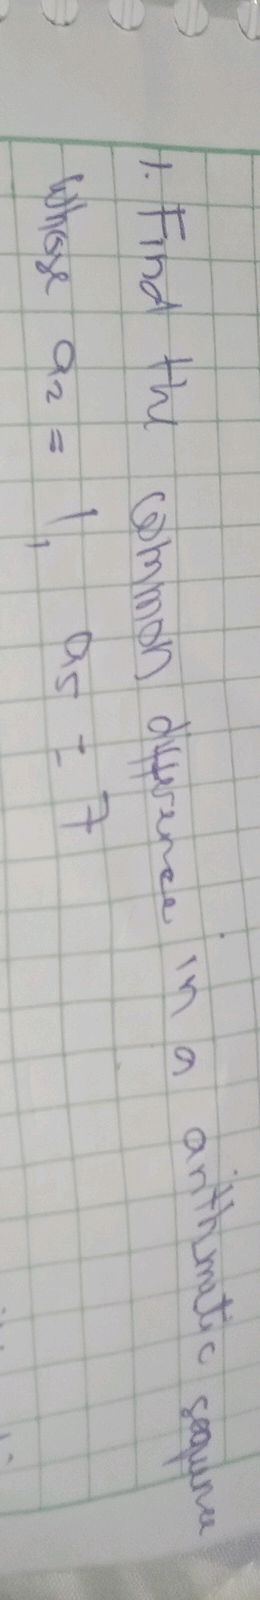 1. Find the common difference in a arithmatic sequence
whose a₂ = 1, a₅ = 7